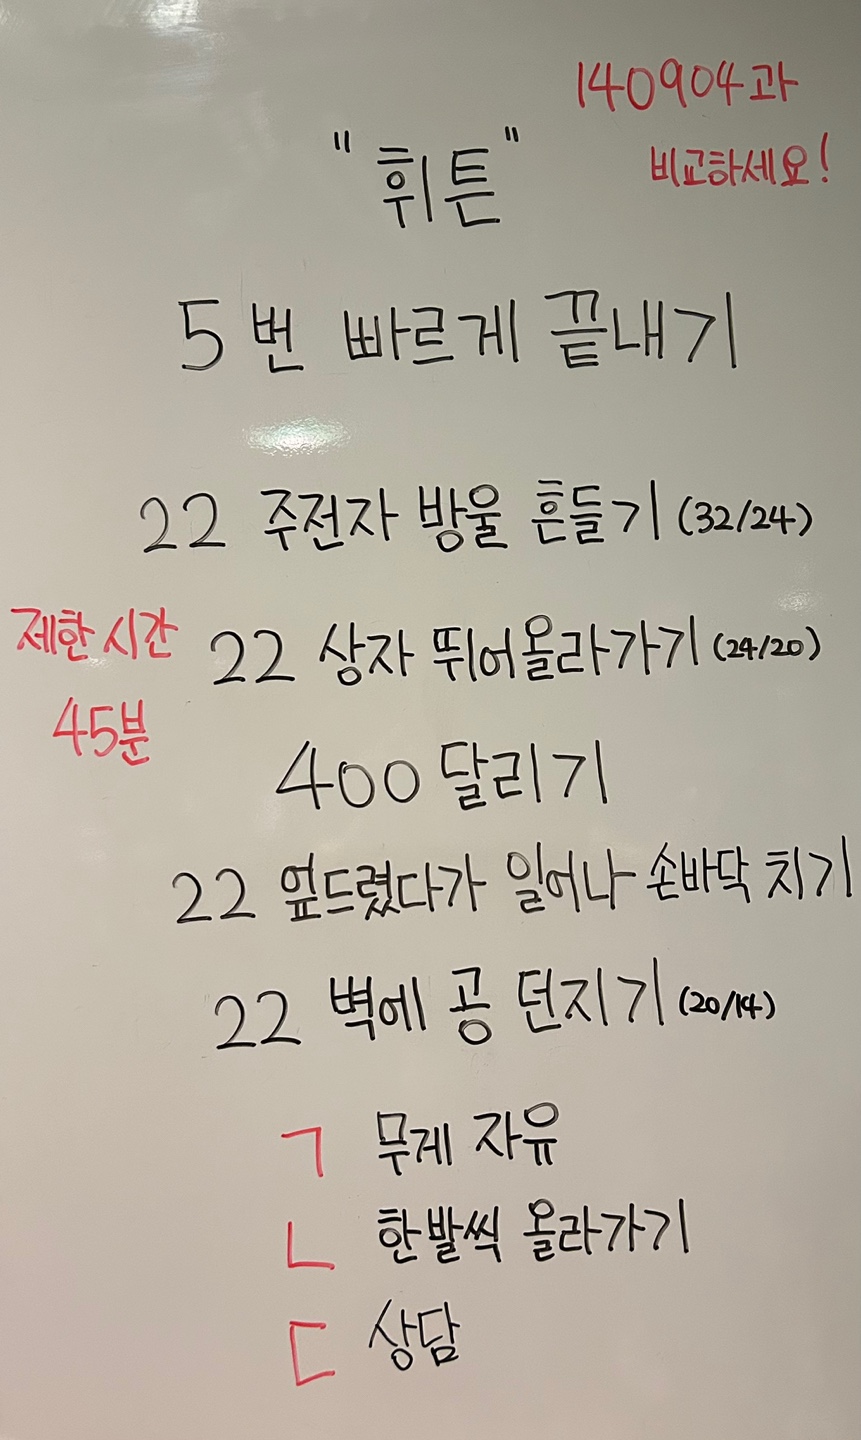 140904과
비교하세요!
"휘튼"
5번 빠르게 끝내기
22 주전자 방울 흔들기 (32/24)
제한시간
45분
22 상자 뛰어올라가기 (24/20)
400 달리기
22 엎드렸다가 일어나 손바닥 치기
22 벽에 공 던지기 (20/14)
ㄱ 무게 자유
ㄴ 한발씩 올라가기
ㄷ 상담